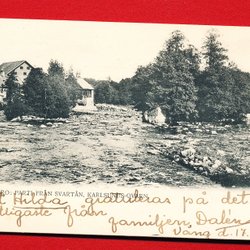 RO: PARTI FRÅN SVARTÅN, KARLSLUND
t Hilda gratuleras på det
tligaste från
familjen Dalén
Vång d. 12